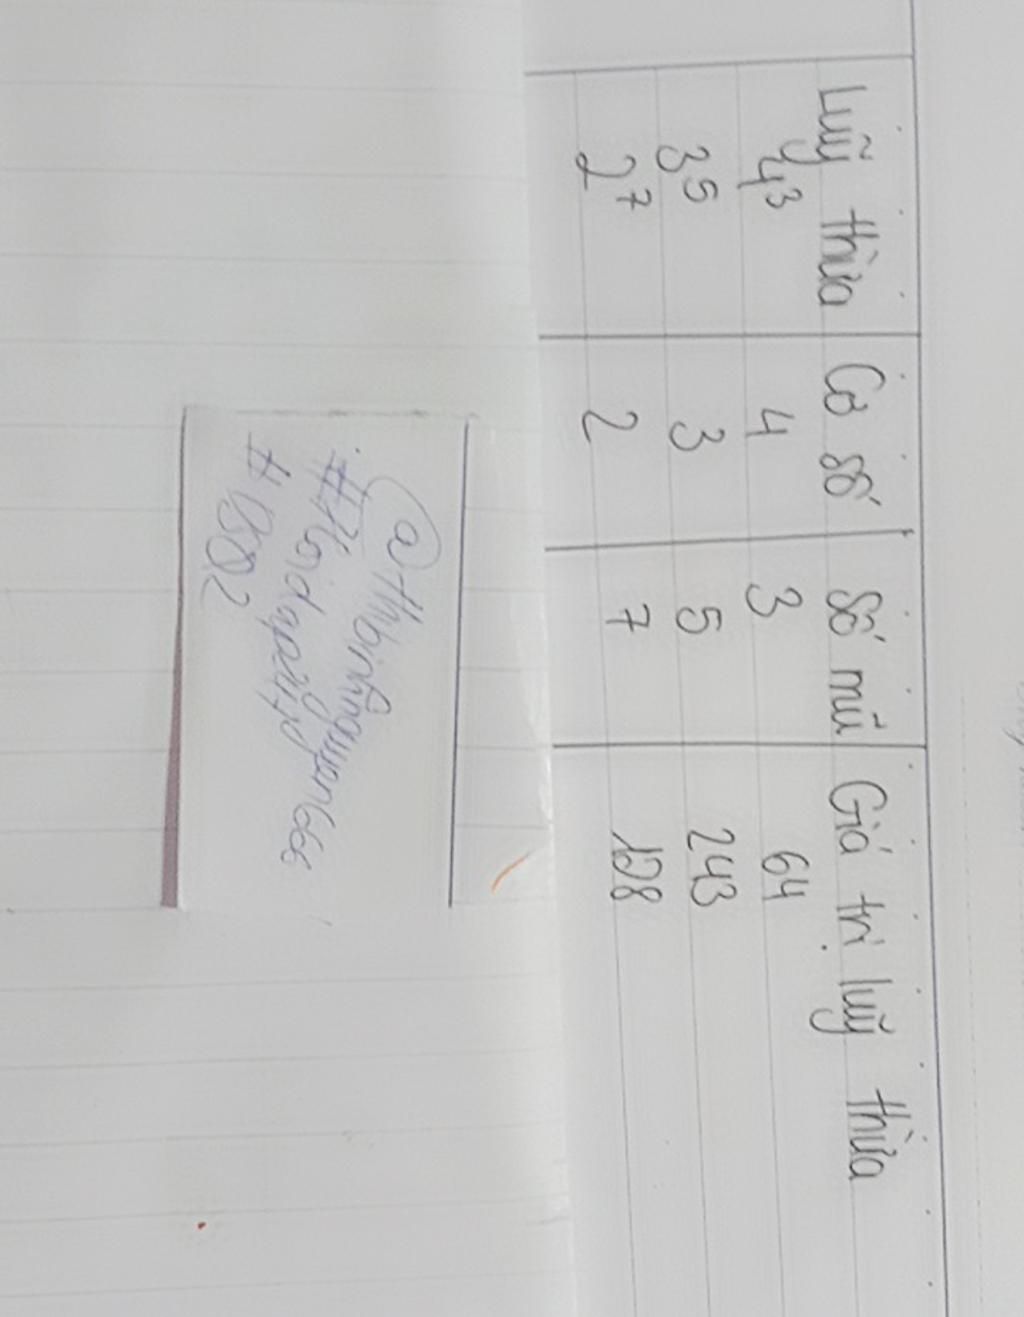 Luỹ thừa Cơ số Số mũ Giá trị luỹ thừa
4³ 4 3 64
3⁵ 3 5 243
2⁷ 2 7 128
@thibinhnguyen1668